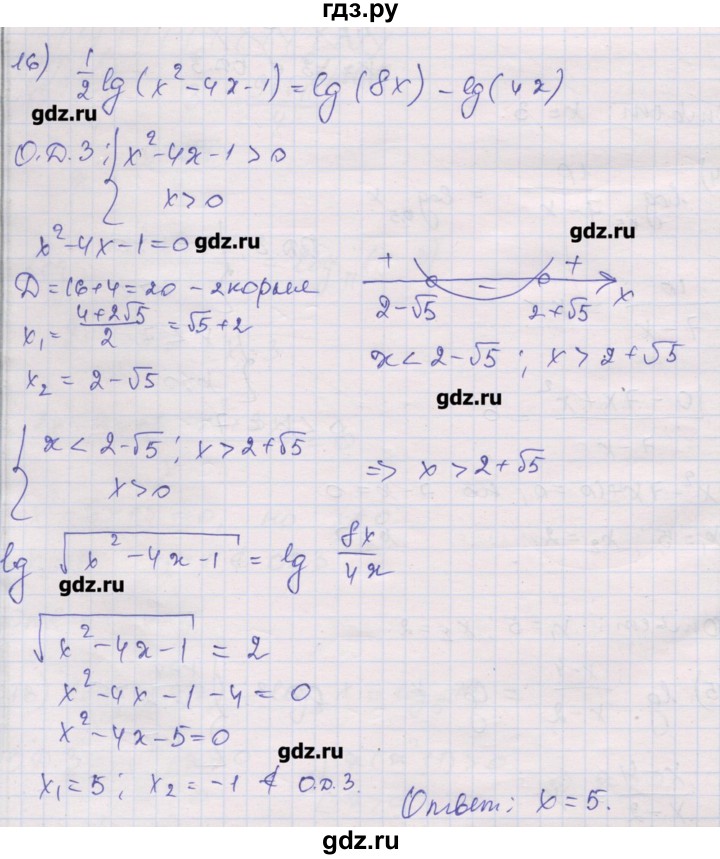 гдз.ру
16) 1/2 lg(x²-4x-1) = lg(8x) - lg(4x)
gdz.ru
О.Д.З: { x²-4x-1>0
x>0
x²-4x-1=0 gdz.ru gdz.ru
D=16+4=20 - 2 корня
+ - + x
2-√5 2+√5
x₁= (4+2√5)/2 = √5+2
x<2-√5; x>2+√5
x₂ = 2-√5
gdz.ru
{ x<2-√5; x>2+√5
x>0 => x>2+√5
lg √(x²-4x-1) = lg 8x/4x
gdz.ru
√(x²-4x-1) = 2
x²-4x-1-4=0
x²-4x-5=0
gdz.ru
x₁=5; x₂=-1 ∉ О.Д.З.
Ответ: x=5.
gdz.ru